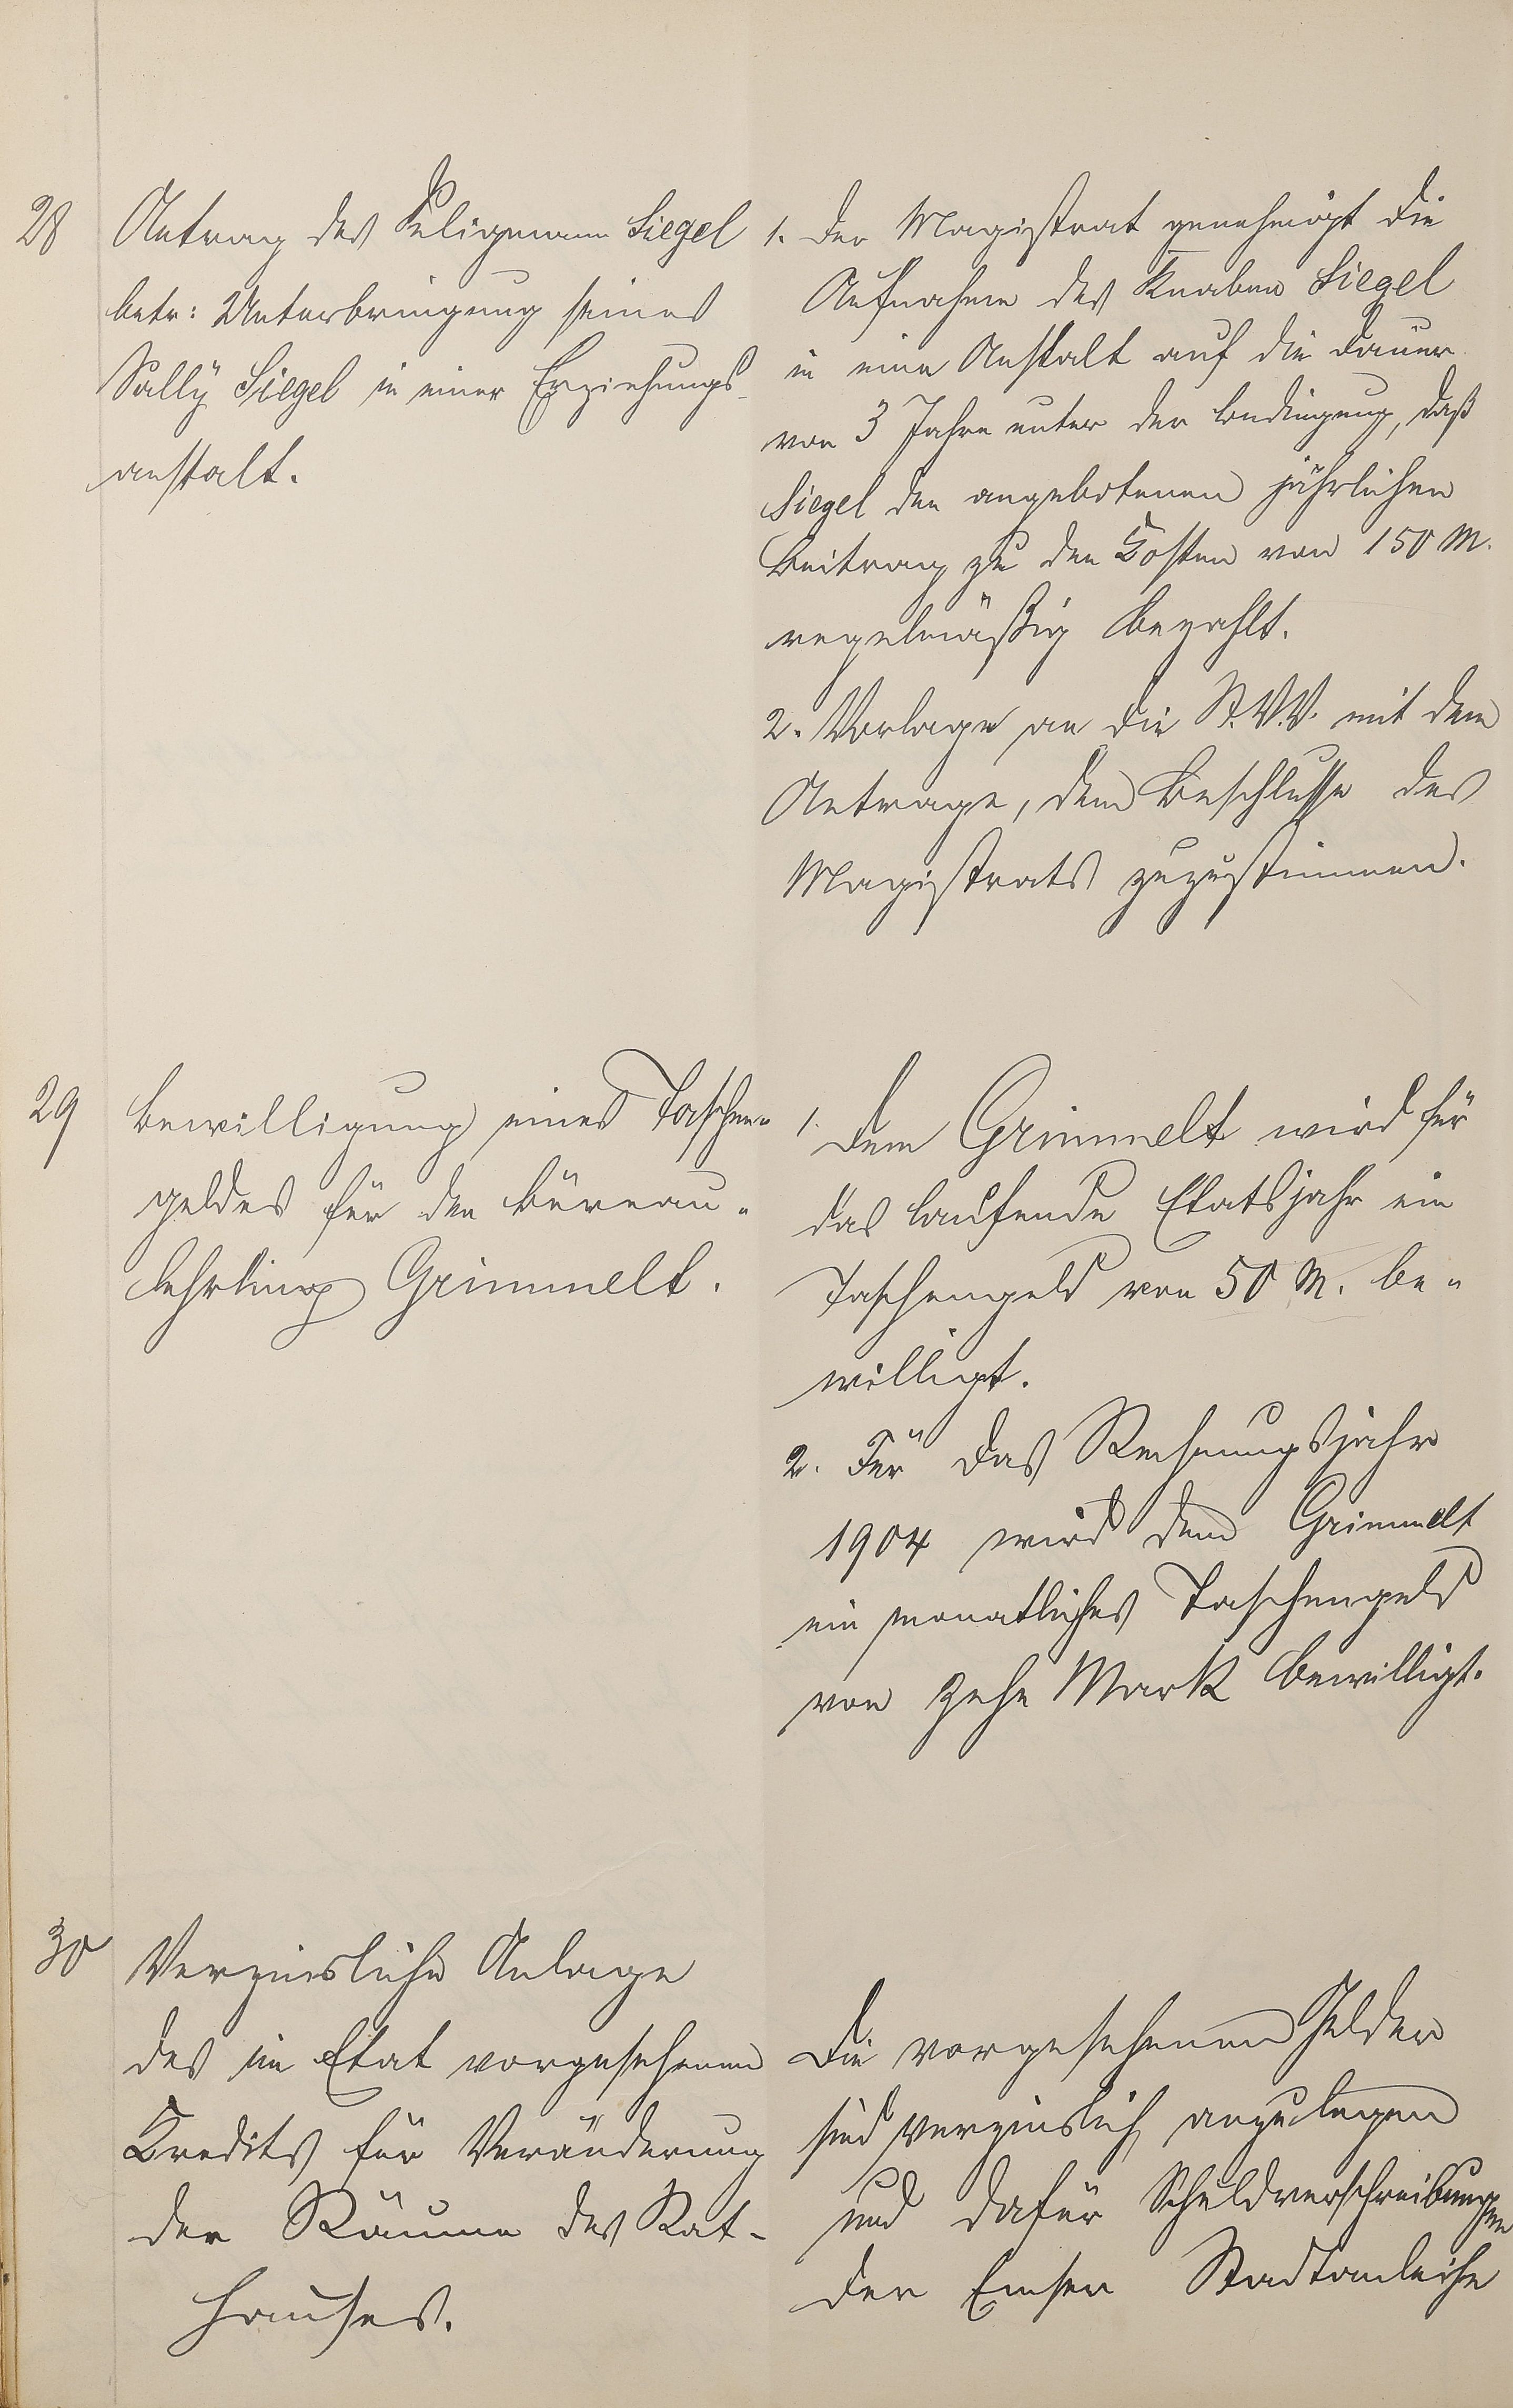 28
Antrag des Seligmann Siegel
betr: Unterbringung seines
Sally Siegel in einer Erziehungs-
anstalt.
1. Der Magistrat genehmigt die
Aufnahme des Knaben Siegel
in eine Anstalt auf die Dauer
von 3 Jahre unter der Bedingung, daß
Siegel den angebotenen jährlichen
Beitrag zu den Kosten von 150 M.
regelmäßig bezahlt.
2. Vorlage an die St.V.V. mit dem
Antrage, dem Beschlusse des
Magistrats zuzustimmen.
29
Bewilligung eines Taschen-
geldes für den Büreau-
lehrling Grimmelt.
1. Dem Grimmelt wird für
das laufende Etatsjahr ein
Taschengeld von 50 M. be-
willigt.
2. Für das Rechnungsjahr
1904 wird dem Grimmelt
ein monatliches Taschengeld
von zehn Mark bewilligt.
30
Verzinsliche Anlage
des im Etat vorgesehenen
Kredits für Veränderung
der Räume des Rat-
hauses.
Die vorgesehenen Gelder
sind verzinslich anzulegen
und dafür Schuldverschreibungen
der Emser Stadtanleihe